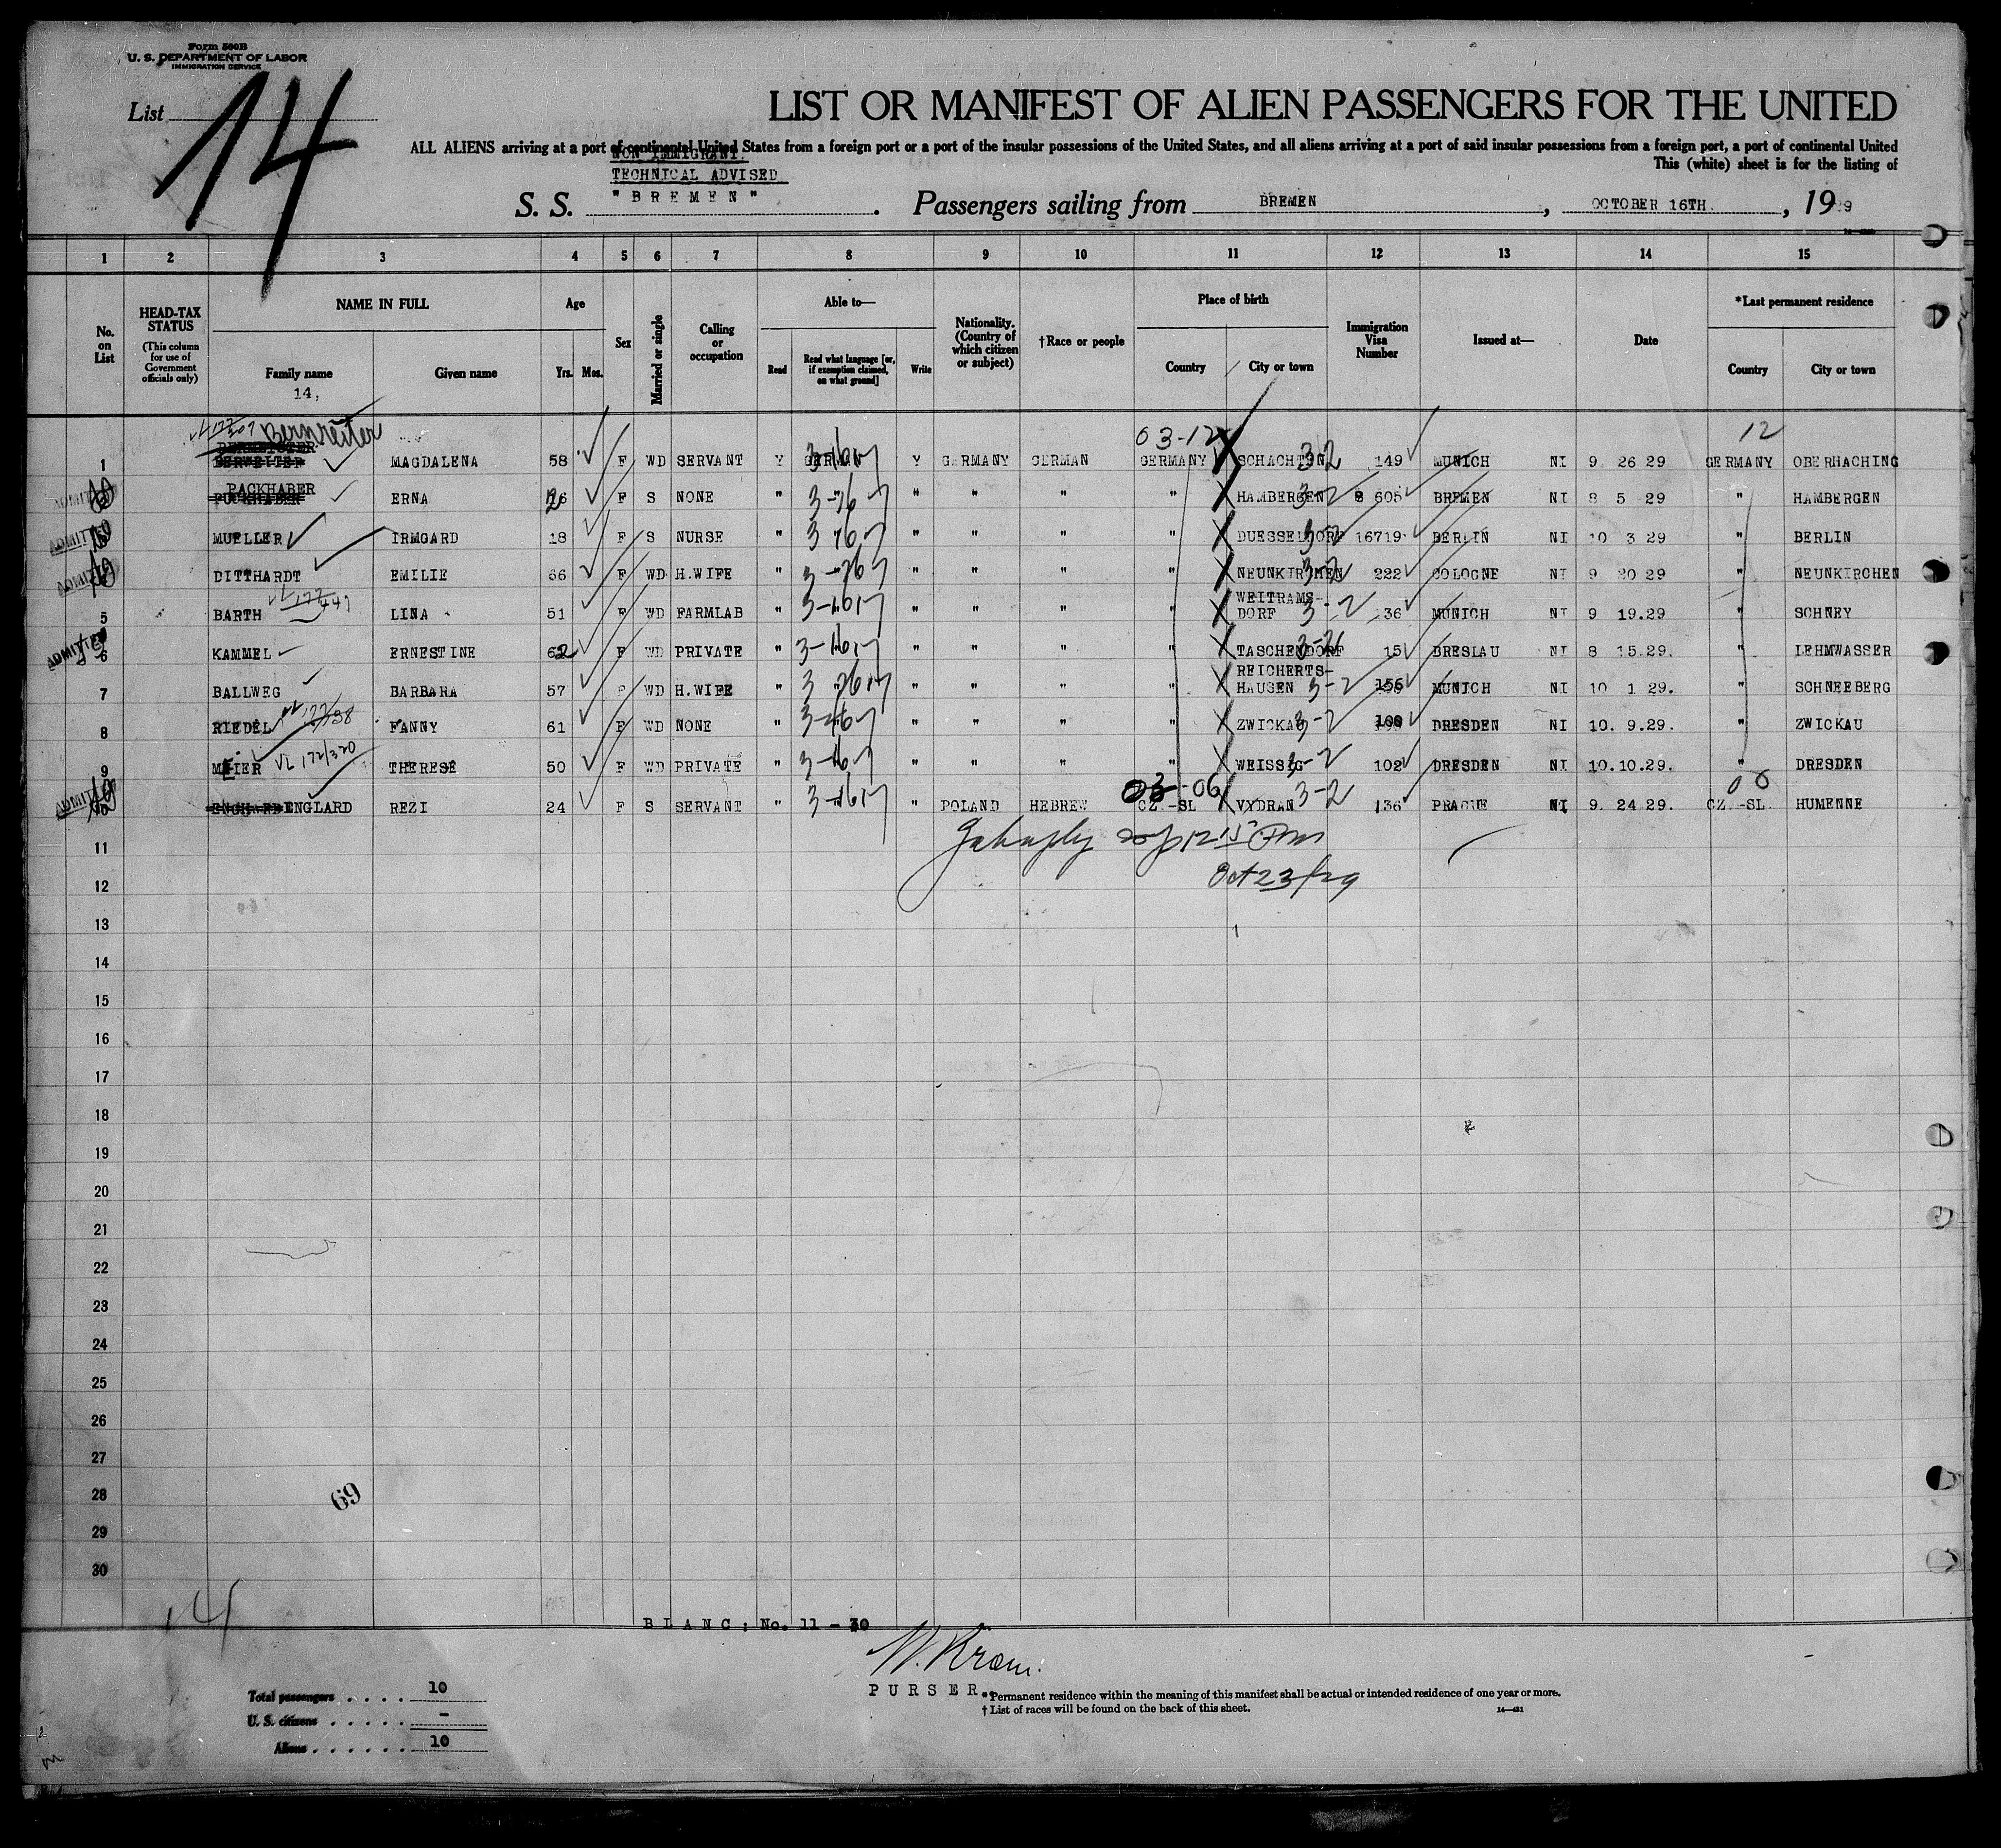 Form 500B
U. S. DEPARTMENT OF LABOR
IMMIGRATION SERVICE
List 14
LIST OR MANIFEST OF ALIEN PASSENGERS FOR THE UNITED
ALL ALIENS arriving at a port of continental United States from a foreign port or a port of the insular possessions of the United States, and all aliens arriving at a port of said insular possessions from a foreign port, a port of continental United
NON IMMIGRANT.
This (white) sheet is for the listing of
TECHNICAL ADVISED
S. S. "BREMEN". Passengers sailing from BREMEN, OCTOBER 16TH., 19 9
1 2 3 4 5 6 7 8 9 10 11 12 13 14 15
No. on List
HEAD-TAX STATUS
(This column for use of Government officials only)
NAME IN FULL
Family name
Given name
14,
Age
Yrs. Mos.
Sex
Married or single
Calling or occupation
Able to—
Read
Read what language [or, if exemption claimed, on what ground]
Write
Nationality. (Country of which citizen or subject)
†Race or people
Place of birth
Country
City or town
Immigration Visa Number
Issued at—
Date
*Last permanent residence
Country
City or town
Bernreiter 03-12 12
1 MAGDALENA 58 F WD SERVANT Y GERMAN Y GERMANY GERMAN GERMANY SCHACHTEN 3-2 149 MUNICH NI 9 26 29 GERMANY OBERHACHING
ADMITTED PACKHABER ERNA 26 F S NONE " " " " " HAMBERGEN 3-2 8 605 BREMEN NI 8 5 29 " HAMBERGEN
ADMITTED MUELLER IRMGARD 18 F S NURSE " " " " " DUESSELDORF 3-2 16719 BERLIN NI 10 3 29 " BERLIN
ADMITTED DITTHARDT EMILIE 66 F WD H.WIFE " " " " " NEUNKIRCHEN 3-2 222 COLOGNE NI 9 20 29 " NEUNKIRCHEN
5 BARTH LINA 51 F WD FARMLAB " " " " " WEITRAMS-DORF 3-2 136 MUNICH NI 9 19.29 " SCHNEY
ADMITTED 6 KAMMEL ERNESTINE 62 F WD PRIVATE " " " " " TASCHENDORF 3-2 15 BRESLAU NI 8 15.29. " LEHMWASSER
7 BALLWEG BARBARA 57 F WD H.WIFE " " " " " REICHERTS-HAUSEN 3-2 156 MUNICH NI 10 1 29. " SCHNEEBERG
8 RIEDEL FANNY 61 F WD NONE " " " " " ZWICKAU 3-2 100 DRESDEN NI 10. 9.29. " ZWICKAU
9 MEIER VL 172/320 THERESE 50 F WD PRIVATE " " " " " WEISSIG 3-2 102 DRESDEN NI 10.10.29. " DRESDEN
03-06 06
ADMITTED 10 ENGLARD REZI 24 F S SERVANT " " POLAND HEBREW CZ.-SL VYDRAN 3-2 136 PRAGUE NI 9. 24 29. CZ.-SL. HUMENNE
11
Oct 23/29
12
13
14
15
16
17
18
19
20
21
22
23
24
25
26
27
28
69
29
30
14
BLANC: No. 11 - 30
W. Kram.
PURSER.
Total passengers . . . . 10
U. S. citizens . . . . . -
Aliens . . . . . . 10
*Permanent residence within the meaning of this manifest shall be actual or intended residence of one year or more.
† List of races will be found on the back of this sheet.
14—421